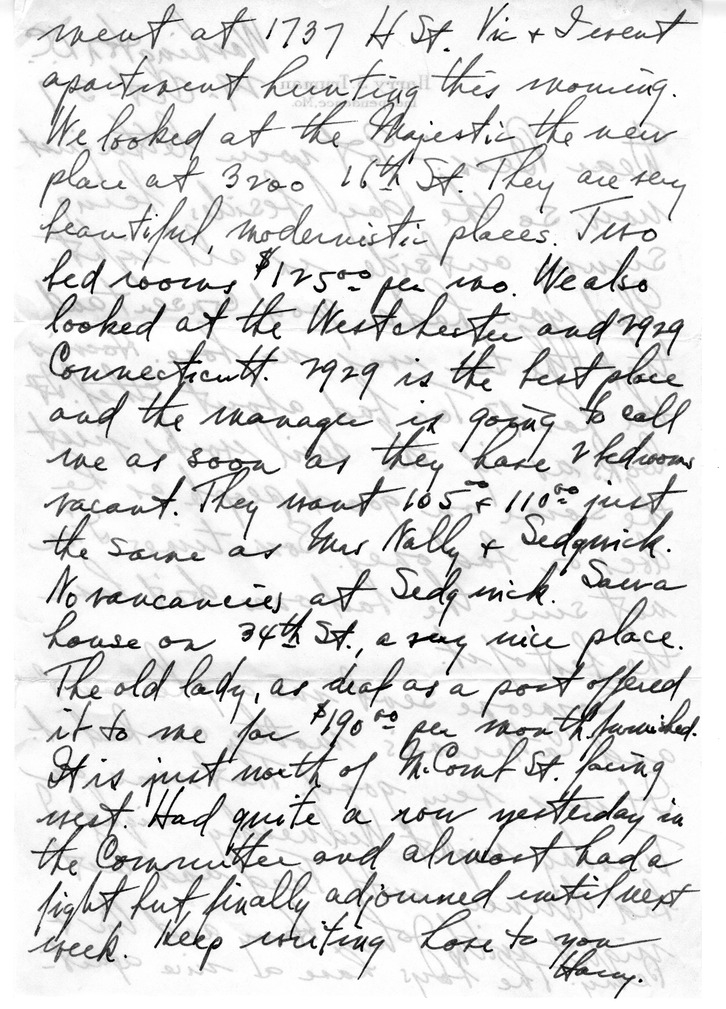 ment at 1737 H St. Vic & I went
apartment hunting this morning.
We looked at the Majestic the new
place at 3200 16th St. They are very
beautiful, modernistic places. Two
bed rooms $125.00 per mo. We also
looked at the Westchester and 2929
Connecticutt. 2929 is the best place
and the manager is going to call
me as soon as they have 2 bedrooms
vacant. They want 105.00 & 110.00 just
the same as Mrs Nally & Sedgwick.
No vancancies at Sedgwick. Saw a
house on 34th St., a very nice place.
The old lady, as deaf as a post offered
it to me for $190.00 per month furnished.
It is just north of McComb St. facing
west. Had quite a row yesterday in
the Committee and almost had a
fight but finally adjourned until next
week. Keep writing love to you
Harry.